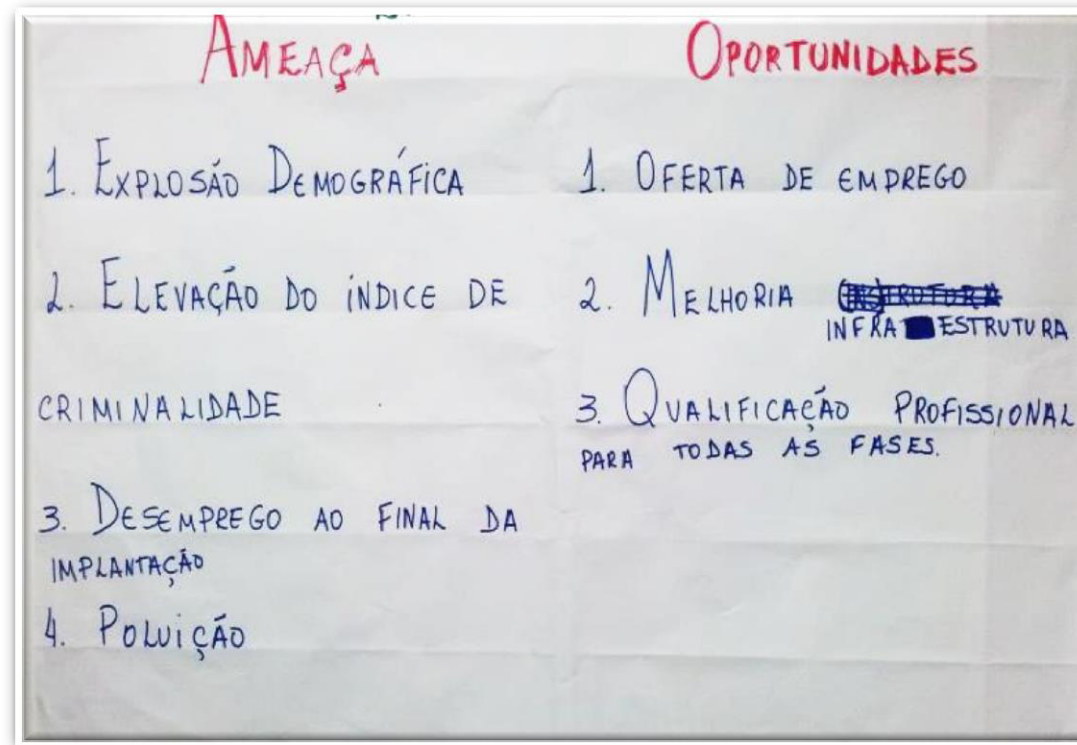 AMEAÇA
1. EXPLOSÃO DEMOGRÁFICA
2. ELEVAÇÃO DO INDICE DE
CRIMINALIDADE
3. DESEMPREGO AO FINAL DA
IMPLANTAÇÃO
4. POLUIÇÃO
OPORTUNIDADES
1. OFERTA DE EMPREGO
2. MELHORIA
INFRA ESTRUTURA
3. QUALIFICAÇÃO PROFISSIONAL
PARA TODAS AS FASES.